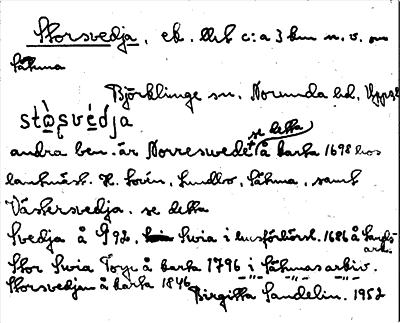 Storsvedja, ek. llt c:a 3 km n. v. om
Sähma
Björklinge sn. Norunda hd. Uppsl.
stòsvédja
se detta
andra ben. är Norreswedet å karta 1698 hos
lantmät. H. Lorin, Lundbo, Sähma, samt
Västersvedja. se detta
Svedja å G 92, Swia i husförlörsl. 1686 å Landsark.
Stor Swia Torp å karta 1796 i Sähmas arkiv.
Storsvedjan å karta 1846 -"- -"- -"-
Birgitta Sandelin. 1952